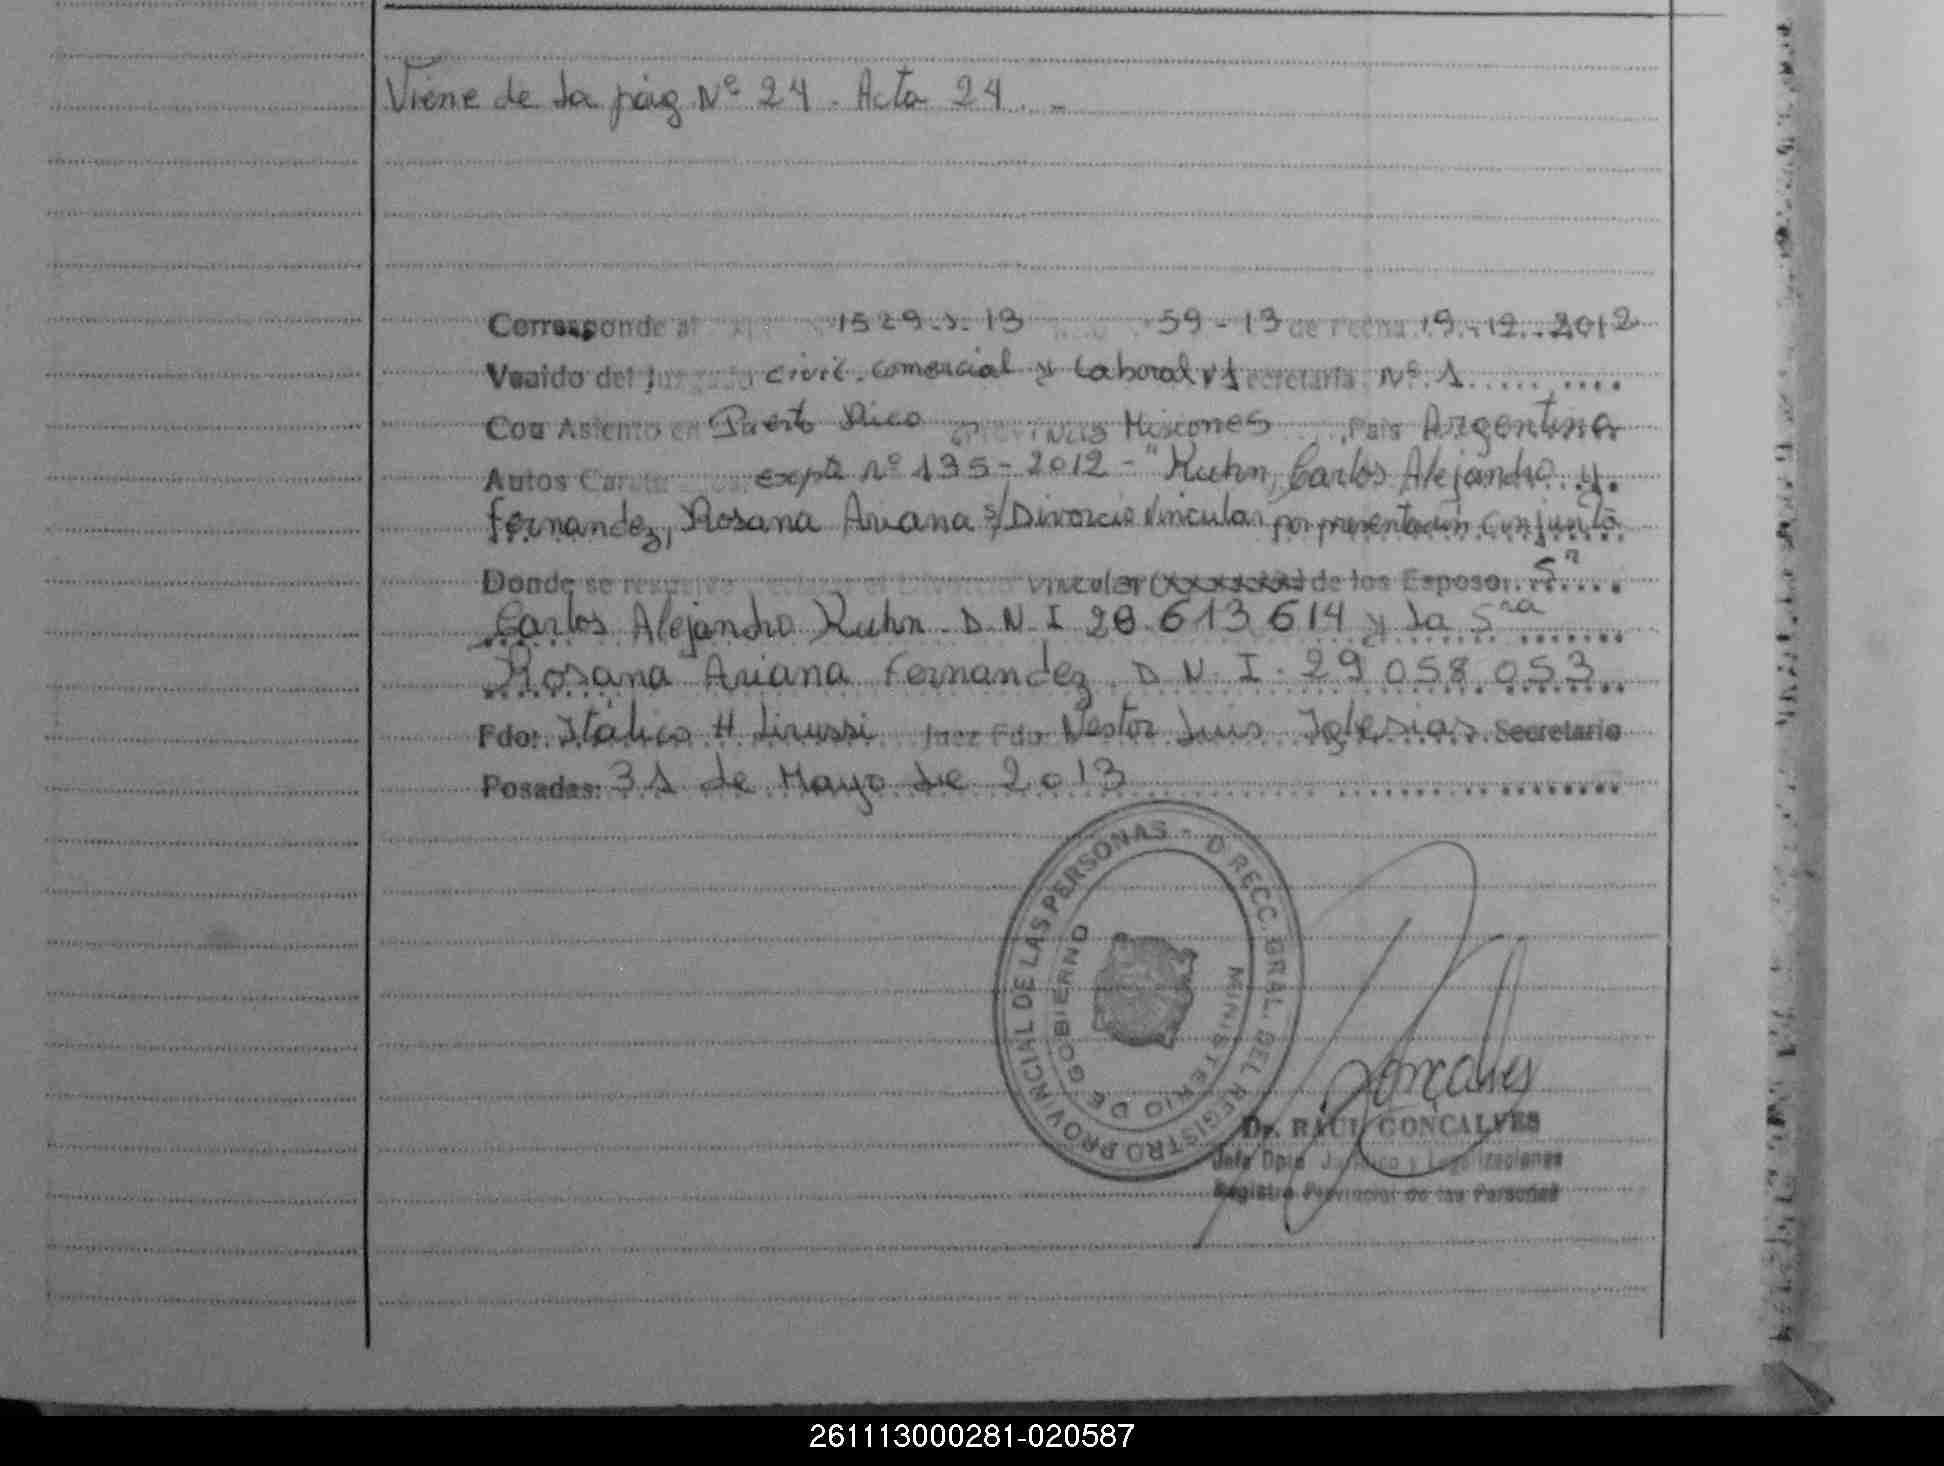 Viene de la pág Nº 24. Acta 24. -
Corresponde al 1529.J.13 59-13 de fecha 19-12-2012
Venido del Juzgado civil. comercial y Laboral Nº1 Secretaria Nº 1
Con Asiento en Puerto Rico Provincia Misiones, País Argentina
Autos Caratulados expte Nº 135-2012-"Kuhn, Carlos Alejandro y
Fernandez, Rosana Ariana s/Divorcio Vincular por presentación Conjunta
Donde se resuelve el Divorcio vincular (xxxxxxx) de los Esposo. Sr
Carlos Alejandro Kuhn D.N.I 28.613.614 y la Sra
Rosana Ariana Fernandez D.N.I. 29 058 053
Fdo: Itálico H Lirussi Juez Fdo: Nestor Luis Iglesias Secretario
Posadas: 31 de Mayo de 2013
DIRECC. GRAL. DEL REGISTRO PROVINCIAL DE LAS PERSONAS -
MINISTERIO DE GOBIERNO
Gonçalves
Dr. RAUL GONÇALVES
Jefe Dpto Jurídico y Legalizaciones
Registro Provincial de las Personas
261113000281-020587